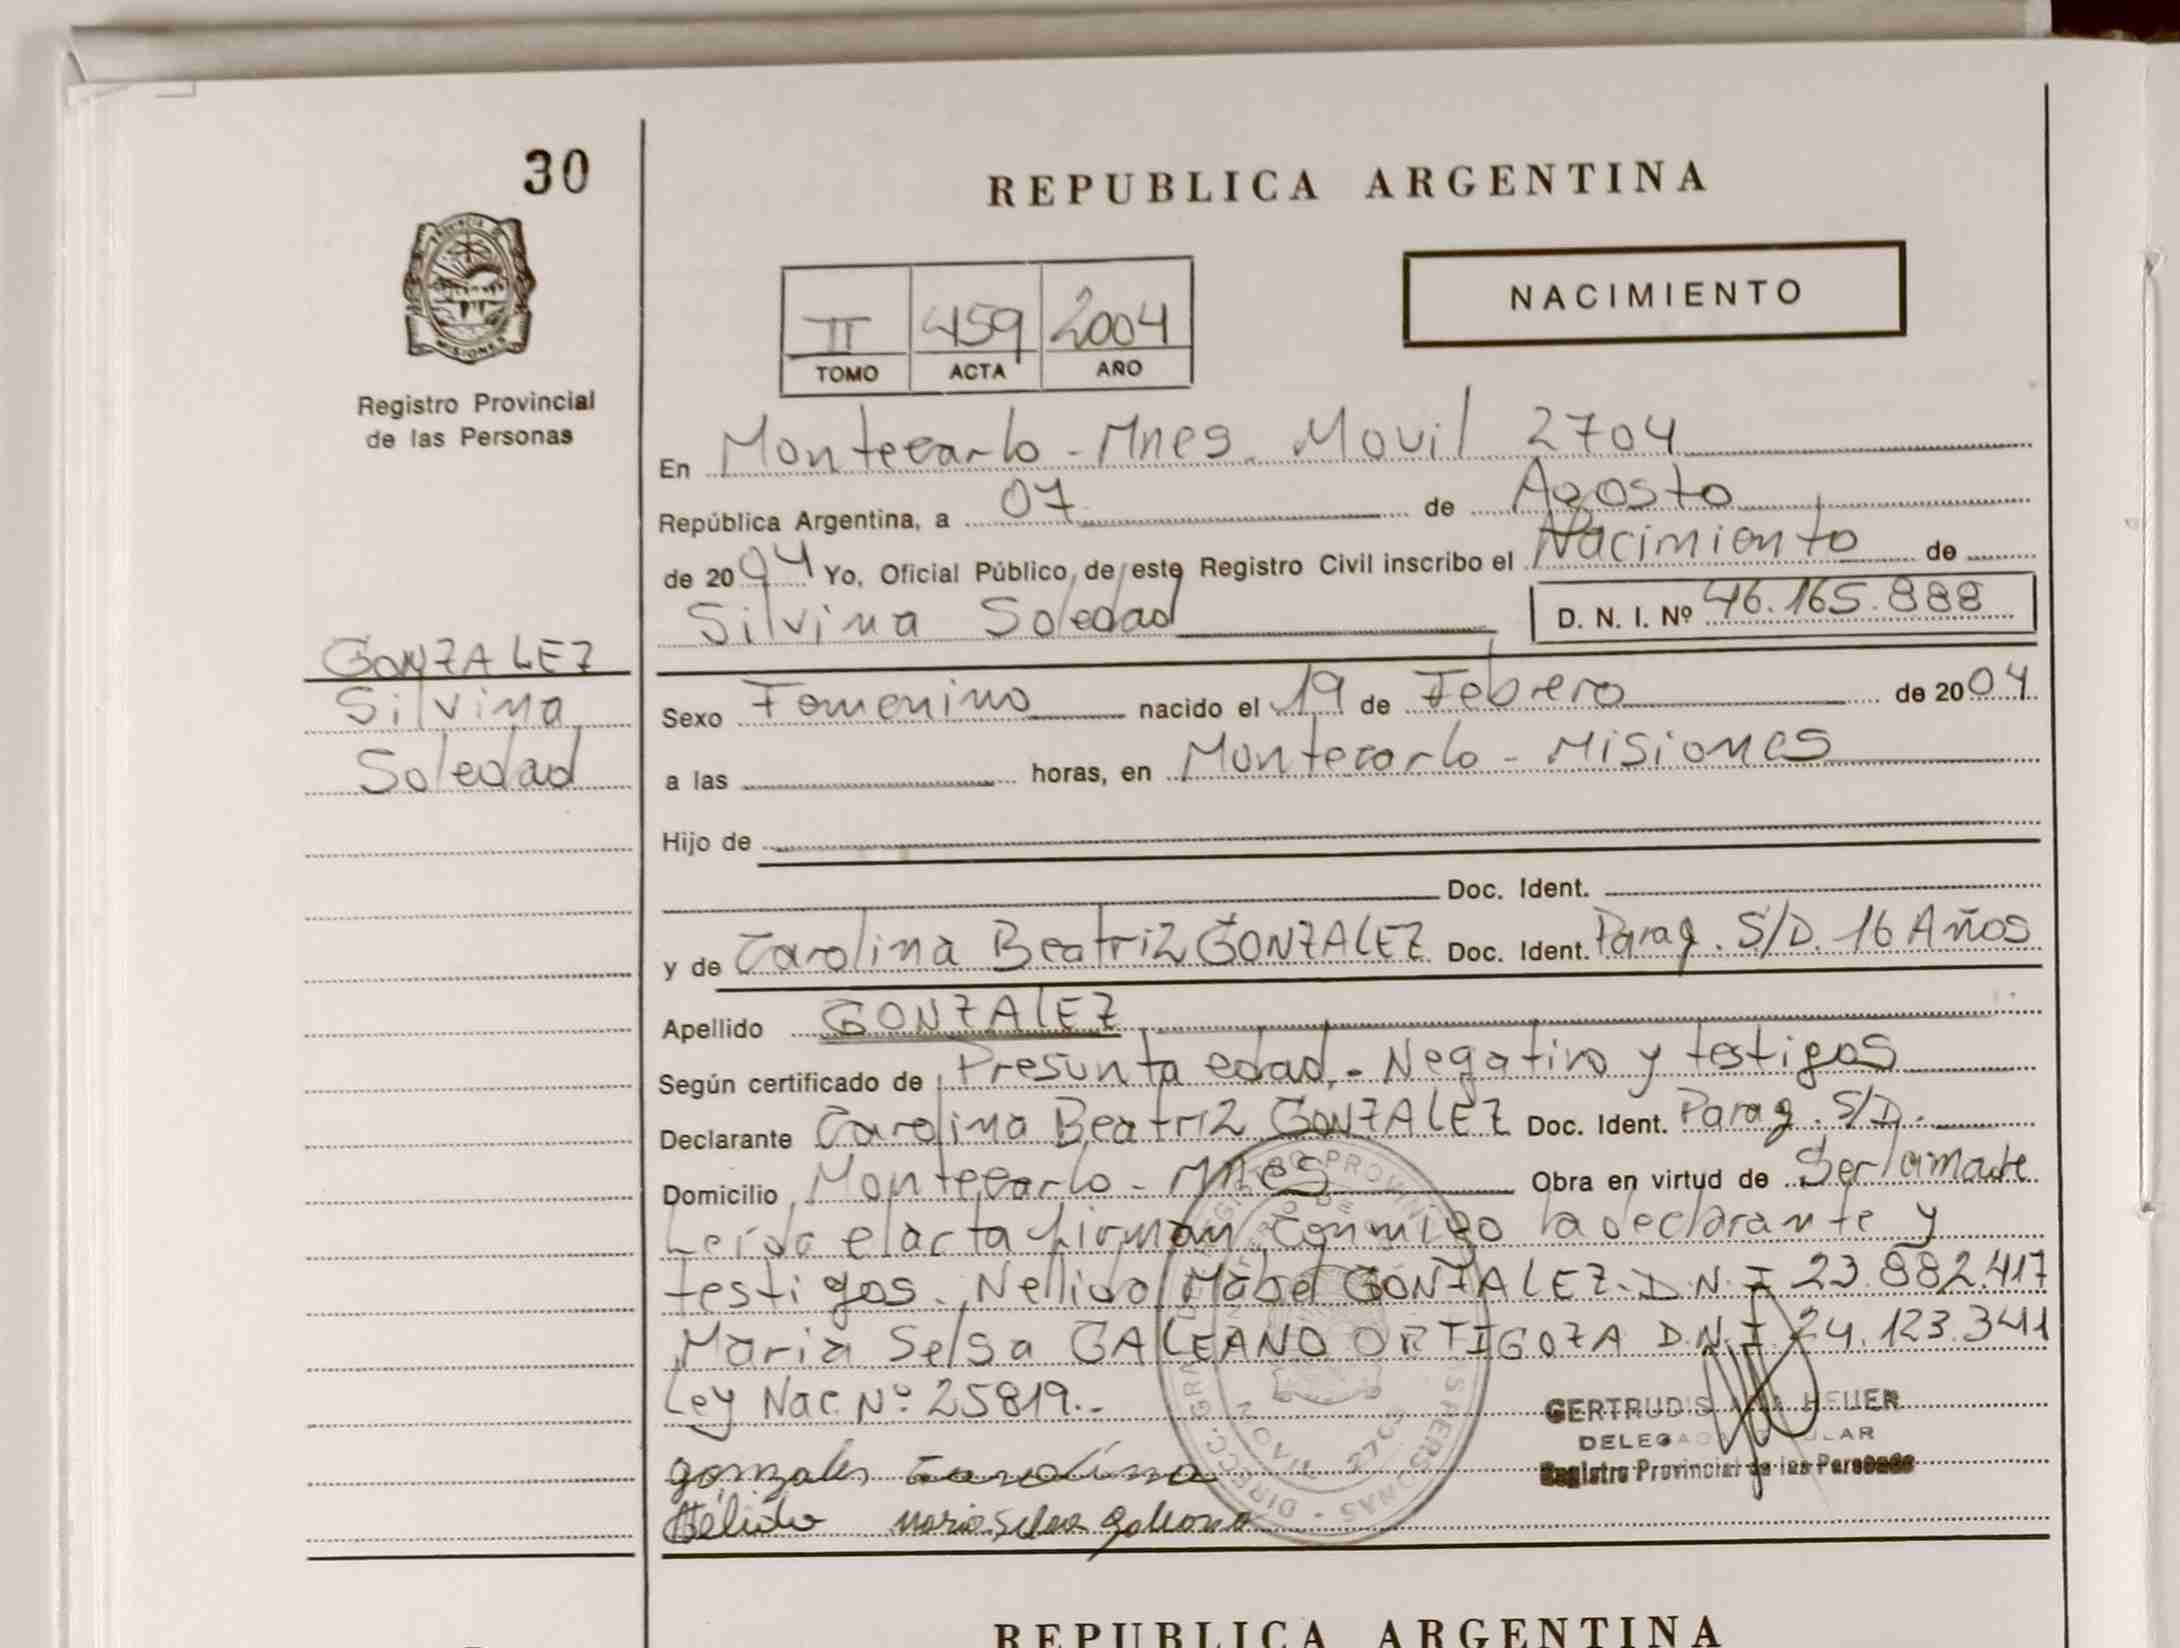 30
REPUBLICA ARGENTINA
PROVINCIA DE
MISIONES
Registro Provincial
de las Personas
NACIMIENTO
II 459 2004
TOMO ACTA AÑO
En Montecarlo - Mnes. Movil 2704
República Argentina, a 07 de Agosto
de 2004 Yo, Oficial Público, de este Registro Civil inscribo el Nacimiento de
Silvina Soledad D. N. I. Nº 46.165.888
GONZALEZ
Silvina
Soledad
Sexo Femenino nacido el 19 de Febrero de 2004
a las horas, en Montecarlo - Misiones
Hijo de
Doc. Ident.
y de Carolina Beatriz GONZALEZ Doc. Ident. Parag. S/D. 16 Años
Apellido GONZALEZ
Según certificado de Presunta edad, - Negativo y testigos
Declarante Carolina Beatriz GONZALEZ Doc. Ident. Parag. S/D.
Domicilio Montecarlo - Mnes Obra en virtud de Ser la madre
Leída el acta firman conmigo la declarante y
testigos. Nellida Mabel GONZALEZ. D.N.I 23.882.417
Maria Selsa GALEANO ORTIGOZA D.N.I. 24.123.341
Ley Nac Nº 25819.-
GERTRUDIS HEUER
Registro Provincial de las Personas
gonzales Carolina
Nélida maria selsa galeano
REPUBLICA ARGENTINA